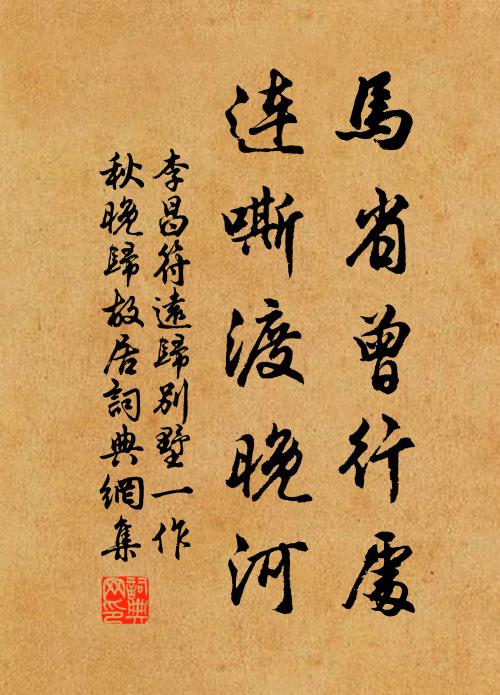 馬省曾行處
連嘶渡晚河
李昌符遠歸別墅一作
秋晚歸故居詞典網集
詞典網印